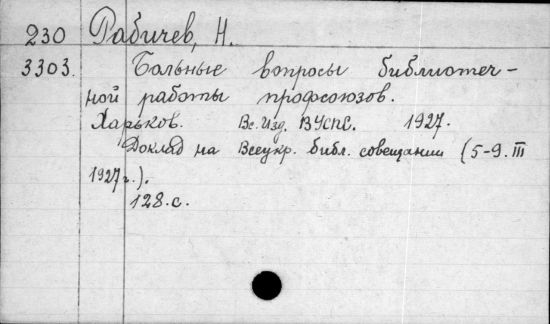 230 Рабичев, Н.
3303. Больные вопросы библиотеч-
ной работы профсоюзов.
Харьков. Вс. Изд. ВУСПС. 1927.
Доклад на Всеукр. библ. совещании (5-9. III
1927г.).
128.с.